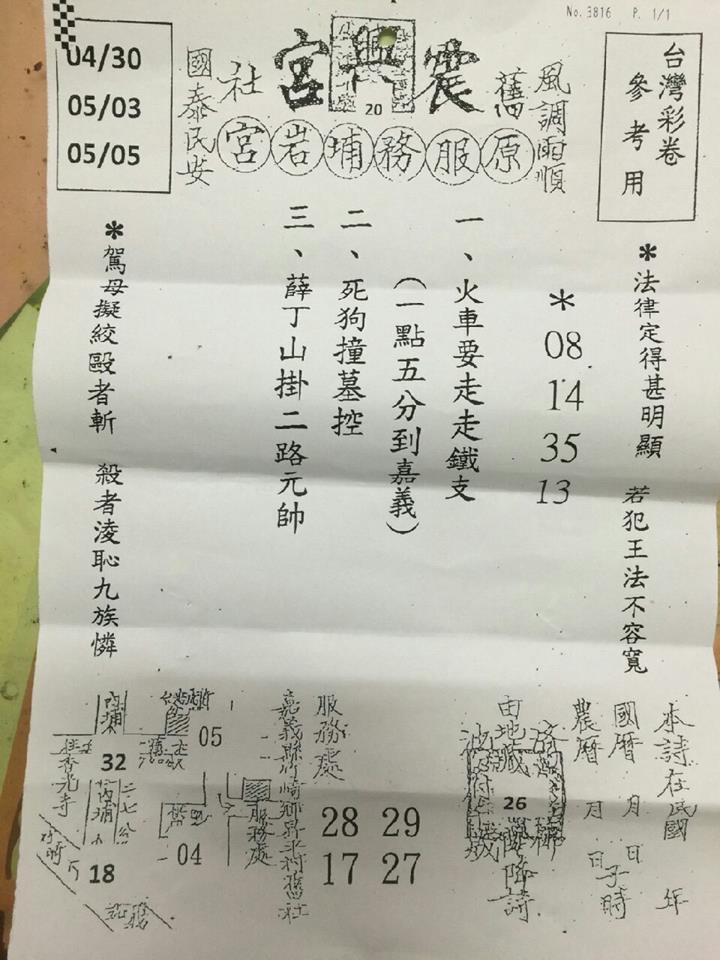 No. 3816 P. 1/1
04/30
05/03
05/05
台灣彩卷
參考用
風調雨順
國泰民安
舊
社
震興宮
20
原服務埔岩宮
*法律定得甚明顯 若犯王法不容寬
*
08
14
35
13
一、火車要走走鐵支
(一點五分到嘉義)
二、死狗撞墓控
三、薛丁山掛二路元帥
*駕母擬絞毆者斬 殺者淩恥九族憐
本詩在民國 年
國曆 月 日
農曆 月 日子時
26
降詩
服務處
28 29
17 27
嘉義縣竹崎鄉昇平村舊社
05
服務處
04
內埔
32
往香光寺
內埔
18